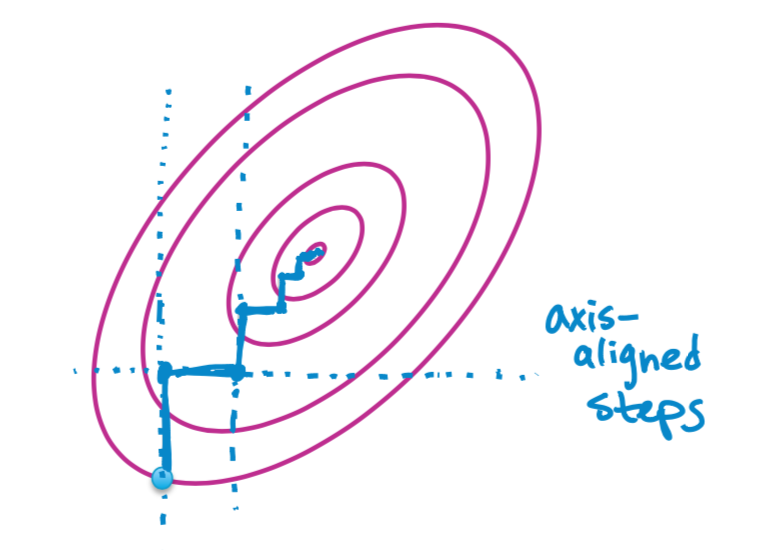 axis-
aligned
steps